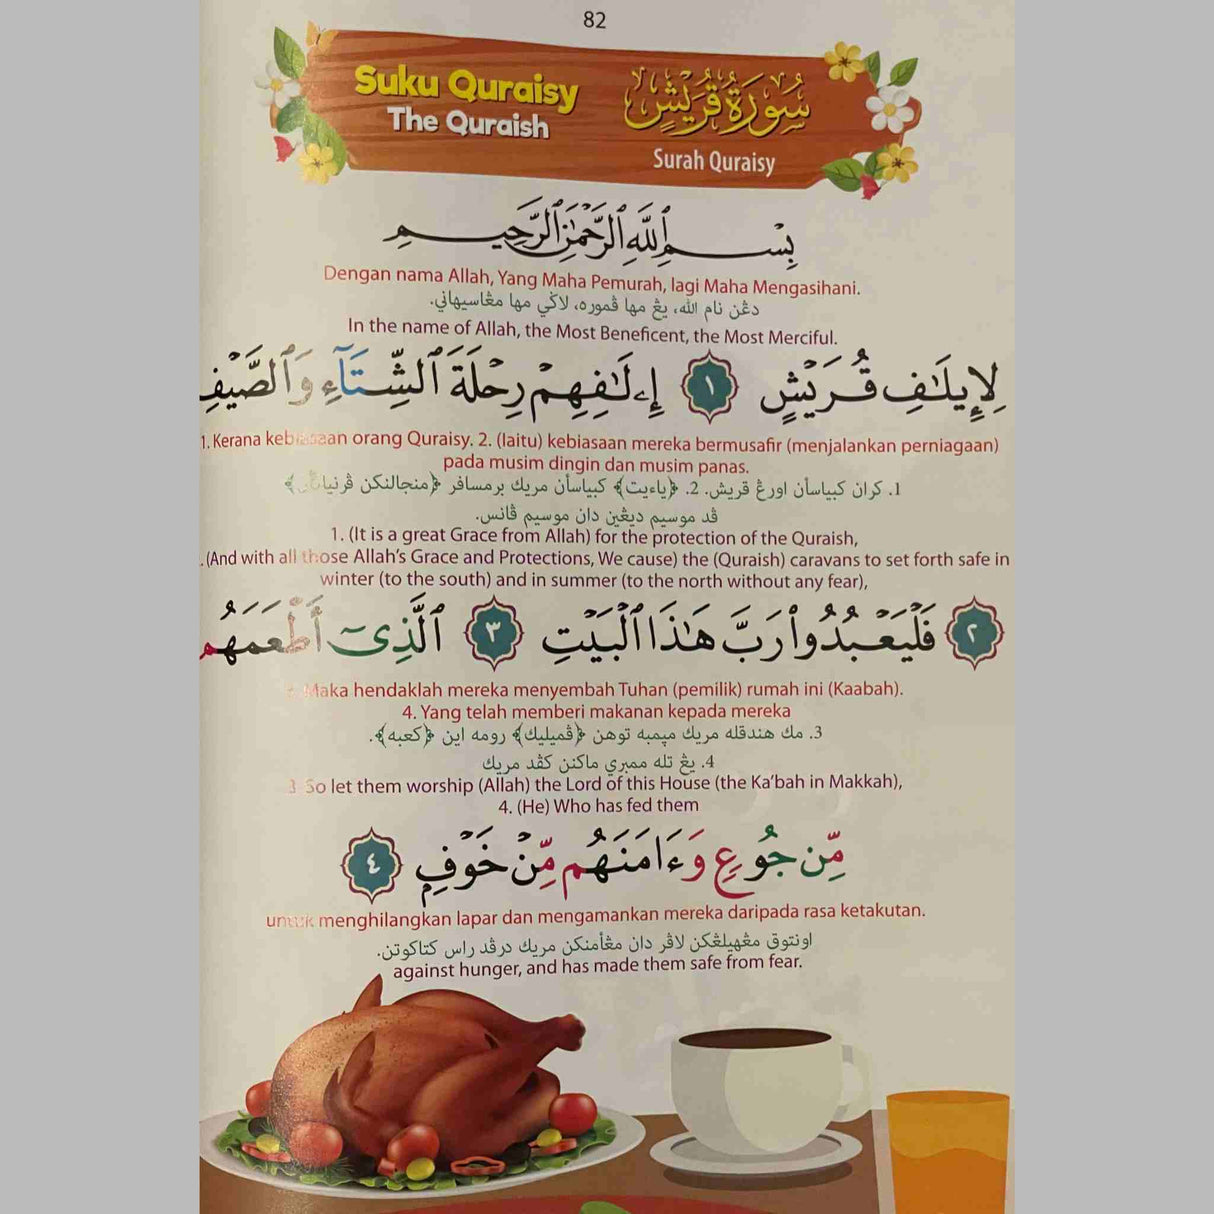 82
Suku Quraisy
The Quraish
سُورَةُ قُرَيْشٍ
Surah Quraisy
بِسْمِ ٱللَّهِ ٱلرَّحْمَٰنِ ٱلرَّحِيمِ
Dengan nama Allah, Yang Maha Pemurah, lagi Maha Mengasihani.
دڠن نام الله، يڠ مها ڤموره، لاݢي مها مڠاسيهاني.
In the name of Allah, the Most Beneficent, the Most Merciful.
لِإِيلَٰفِ قُرَيْشٍ ١ إِۦلَٰفِهِمْ رِحْلَةَ ٱلشِّتَآءِ وَٱلصَّيْفِ
1. Kerana kebiasaan orang Quraisy. 2. (Iaitu) kebiasaan mereka bermusafir (menjalankan perniagaan)
pada musim dingin dan musim panas.
1. کران کبياسأن اورڠ قريش. 2. ﴿ياءيت﴾ کبياسأن مريك برمسافر ﴿منجالنکن ڤرنياݢأن﴾
ڤد موسيم ديڠين دان موسيم ڤانس.
1. (It is a great Grace from Allah) for the protection of the Quraish,
. (And with all those Allah's Grace and Protections, We cause) the (Quraish) caravans to set forth safe in
winter (to the south) and in summer (to the north without any fear),
٢ فَلْيَعْبُدُوا۟ رَبَّ هَٰذَا ٱلْبَيْتِ ٣ ٱلَّذِىٓ أَطْعَمَهُم
3. Maka hendaklah mereka menyembah Tuhan (pemilik) rumah ini (Kaabah).
4. Yang telah memberi makanan kepada mereka
3. مك هندقله مريك مڽمبه توهن ﴿ڤميليك﴾ رومه اين ﴿کعبه﴾.
4. يڠ تله ممبري ماکنن کڤد مريك
3. So let them worship (Allah) the Lord of this House (the Ka'bah in Makkah),
4. (He) Who has fed them
مِّن جُوعٍ وَءَامَنَهُم مِّنْ خَوْفٍۭ ٤
untuk menghilangkan lapar dan mengamankan mereka daripada rasa ketakutan.
اونتوق مڠهيلڠکن لاڤر دان مڠأمنکن مريك درڤد راس کتاکوتن.
against hunger, and has made them safe from fear.